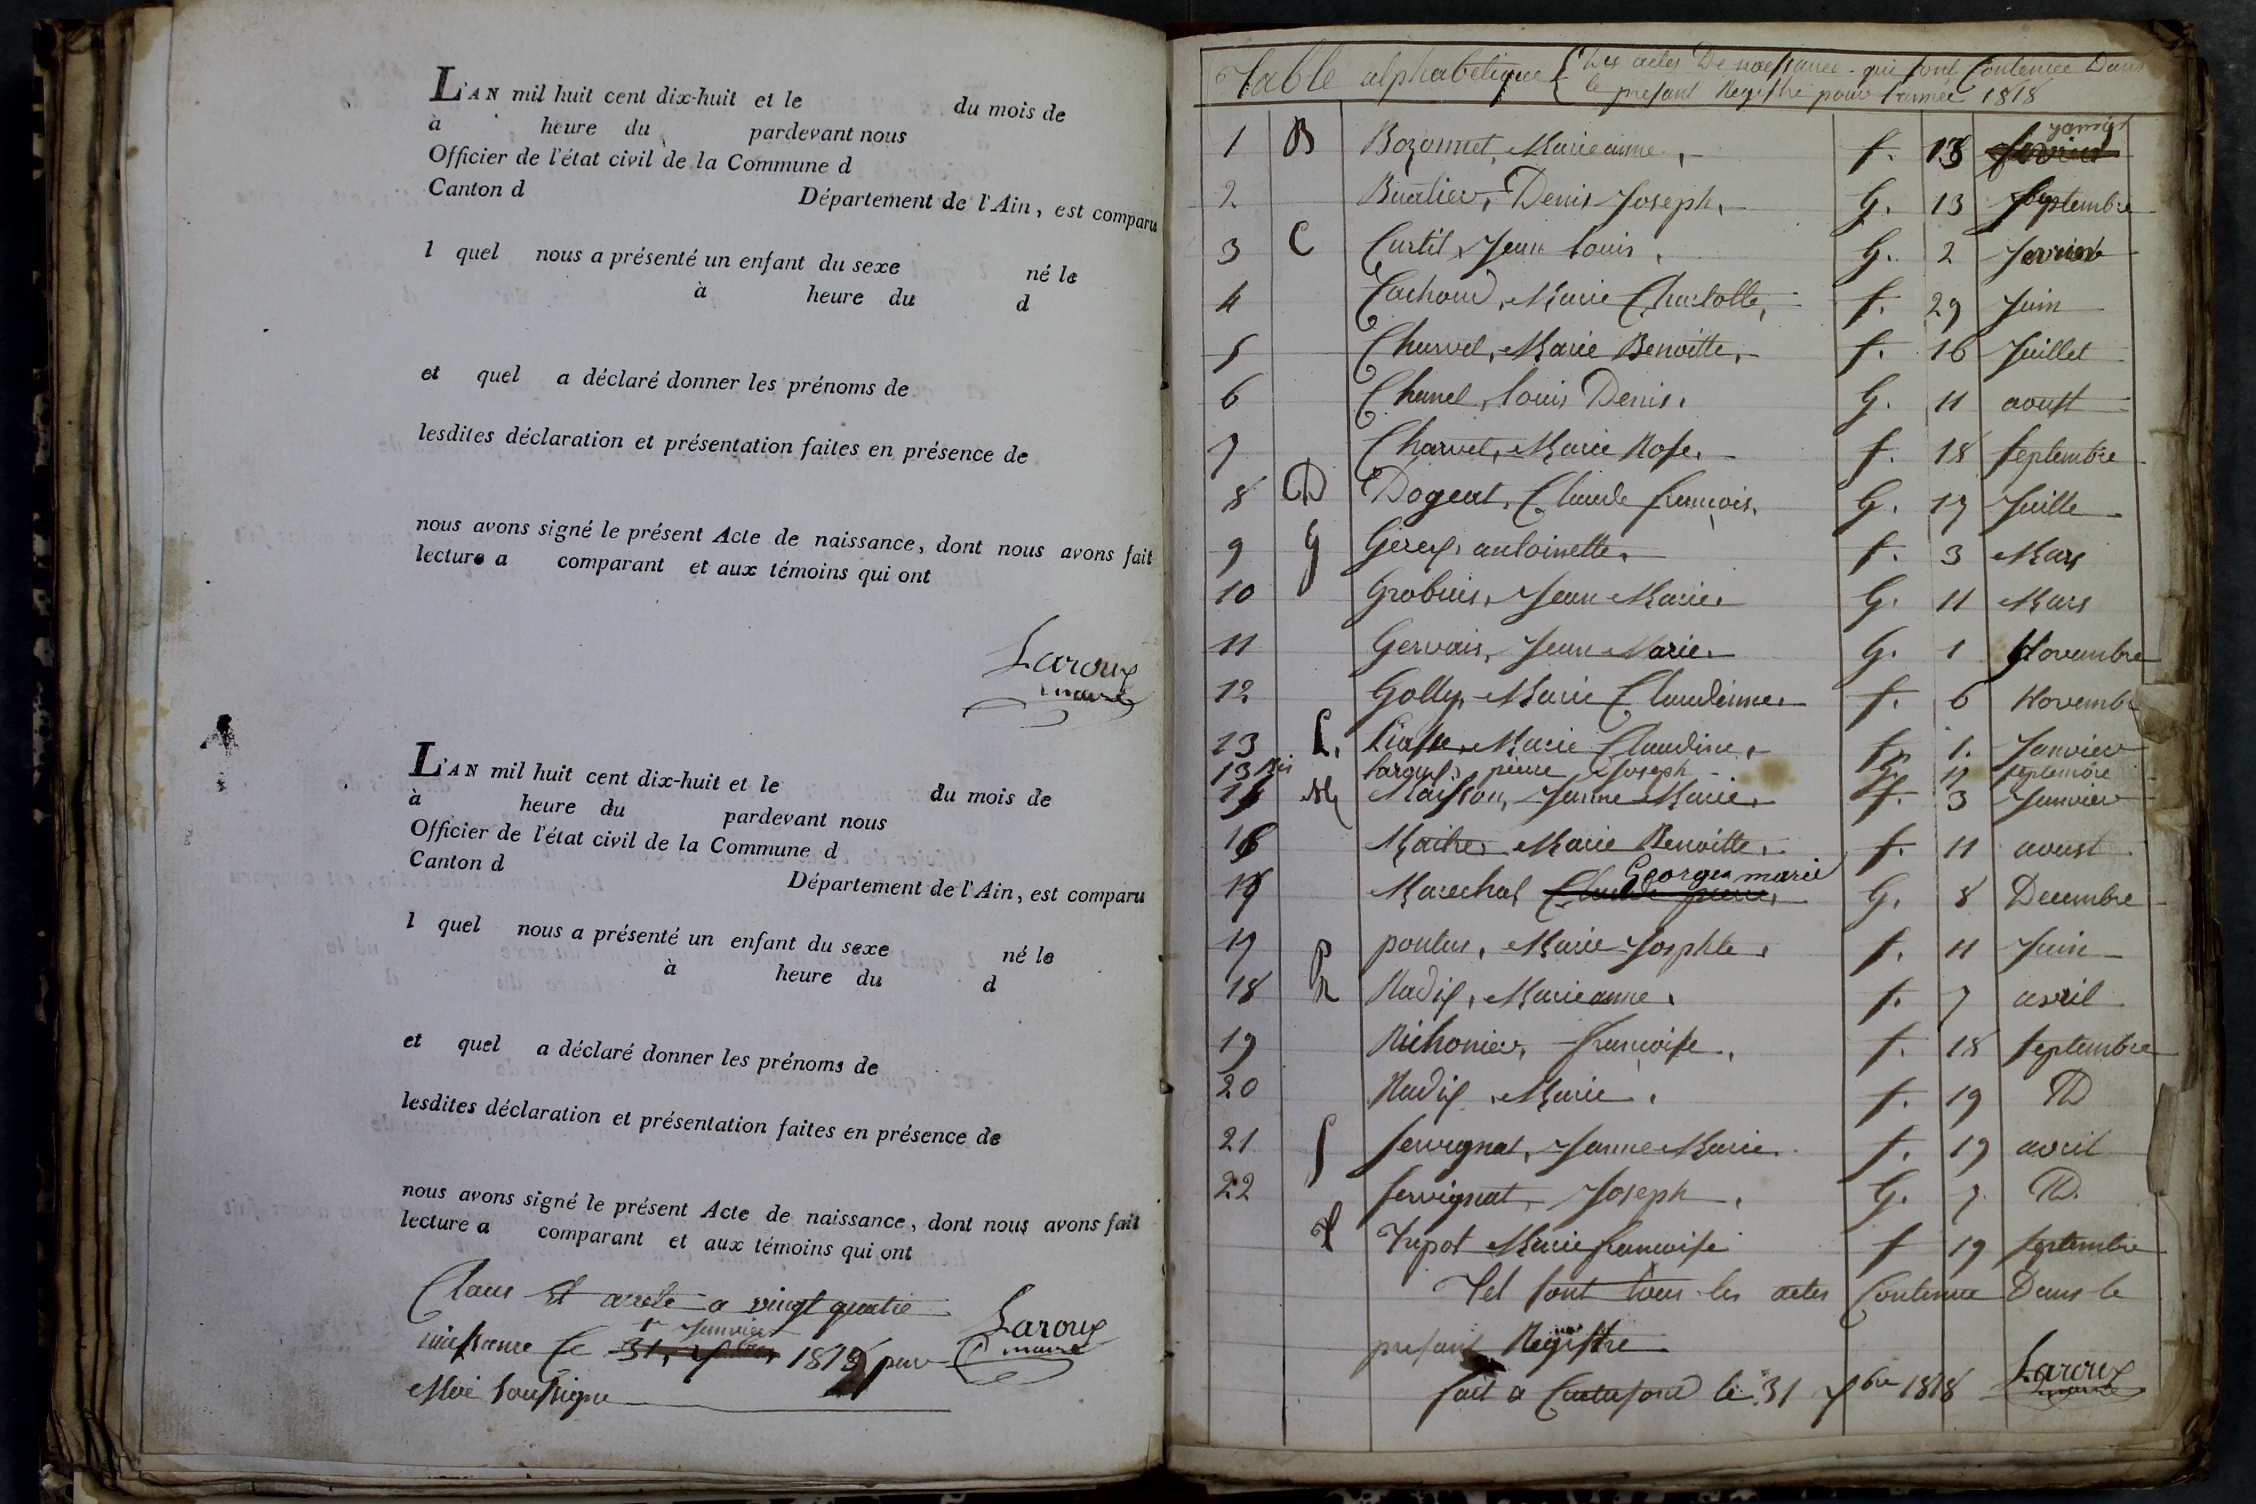 L'AN mil huit cent dix-huit et le du mois de
à heure du pardevant nous
Officier de l'état civil de la Commune d
Canton d Département de l'Ain, est comparu
l quel nous a présenté un enfant du sexe né le
à heure du d
et quel a déclaré donner les prénoms de
lesdites déclaration et présentation faites en présence de
nous avons signé le présent Acte de naissance, dont nous avons fait
lecture a comparant et aux témoins qui ont
Laroux
maire
L'AN mil huit cent dix-huit et le du mois de
à heure du pardevant nous
Officier de l'état civil de la Commune d
Canton d Département de l'Ain, est comparu
l quel nous a présenté un enfant du sexe né le
à heure du d
et quel a déclaré donner les prénoms de
lesdites déclaration et présentation faites en présence de
nous avons signé le présent Acte de naissance, dont nous avons fait
lecture a comparant et aux témoins qui ont
Claus et arrete a vingt quatre
naissance le 31 1r Janvier 1819 par
Moi soussigne
Laroux
maire
Table alphabetique Des actes De naissance qui sont Contenue Dans
le present Registre pour l'année 1818
1 B Bozonnet, Marieanne, f. 13 fevrier janvier
2 Buatier, Denis Joseph, G. 13 septembre
3 C Curtil, Jean louis, G. 2
4 Cachoud, Marie Charlotte, f. 29 Juin
5 Charvet, Marie Benoitte, f. 16 Juillet
6 Chanel, louis Denis. G. 11 aoust
7 Charvet, Marie Rose. f. 18 septembre
8 D Dogeat, Claude françois. G. 17 Juille
9 G antoinette. f. 3 Mars
10 Grobuis, Jean Marie. G. 11 Mars
11 Gervais, Jean Marie. G. 1 Novembre
12 Golly, Marie Claudinne. f. 6 Novembre
13 L. Marie Claudine, f. 1. Janvier
13 bis pierre Joseph G. 17 septembre
14 M Maisson, Janne Marie. f. 3 Janvier
16 Maitre Marie Benoitte. f. 11 aoust
Marechal Claude pierre, Georges marie G. 8 Decembre
17 p pontus, Marie Josphte. f. 11 Juin
18 R Radix, Marieanne. f. 7 avril
19 Richonier, françoise. f. 18 septembre
20 Radix, Marie. f. 19 ID
21 S servignat, Janne Marie. f. 19 avril
22 servignat, Joseph. G. 7 ID.
T Tripot Marie francoise f 19 septembre
Tel sont tous les actes Contenue Dans le
present Registre
fait a le 31 Xbre 1818 Laroux
maire